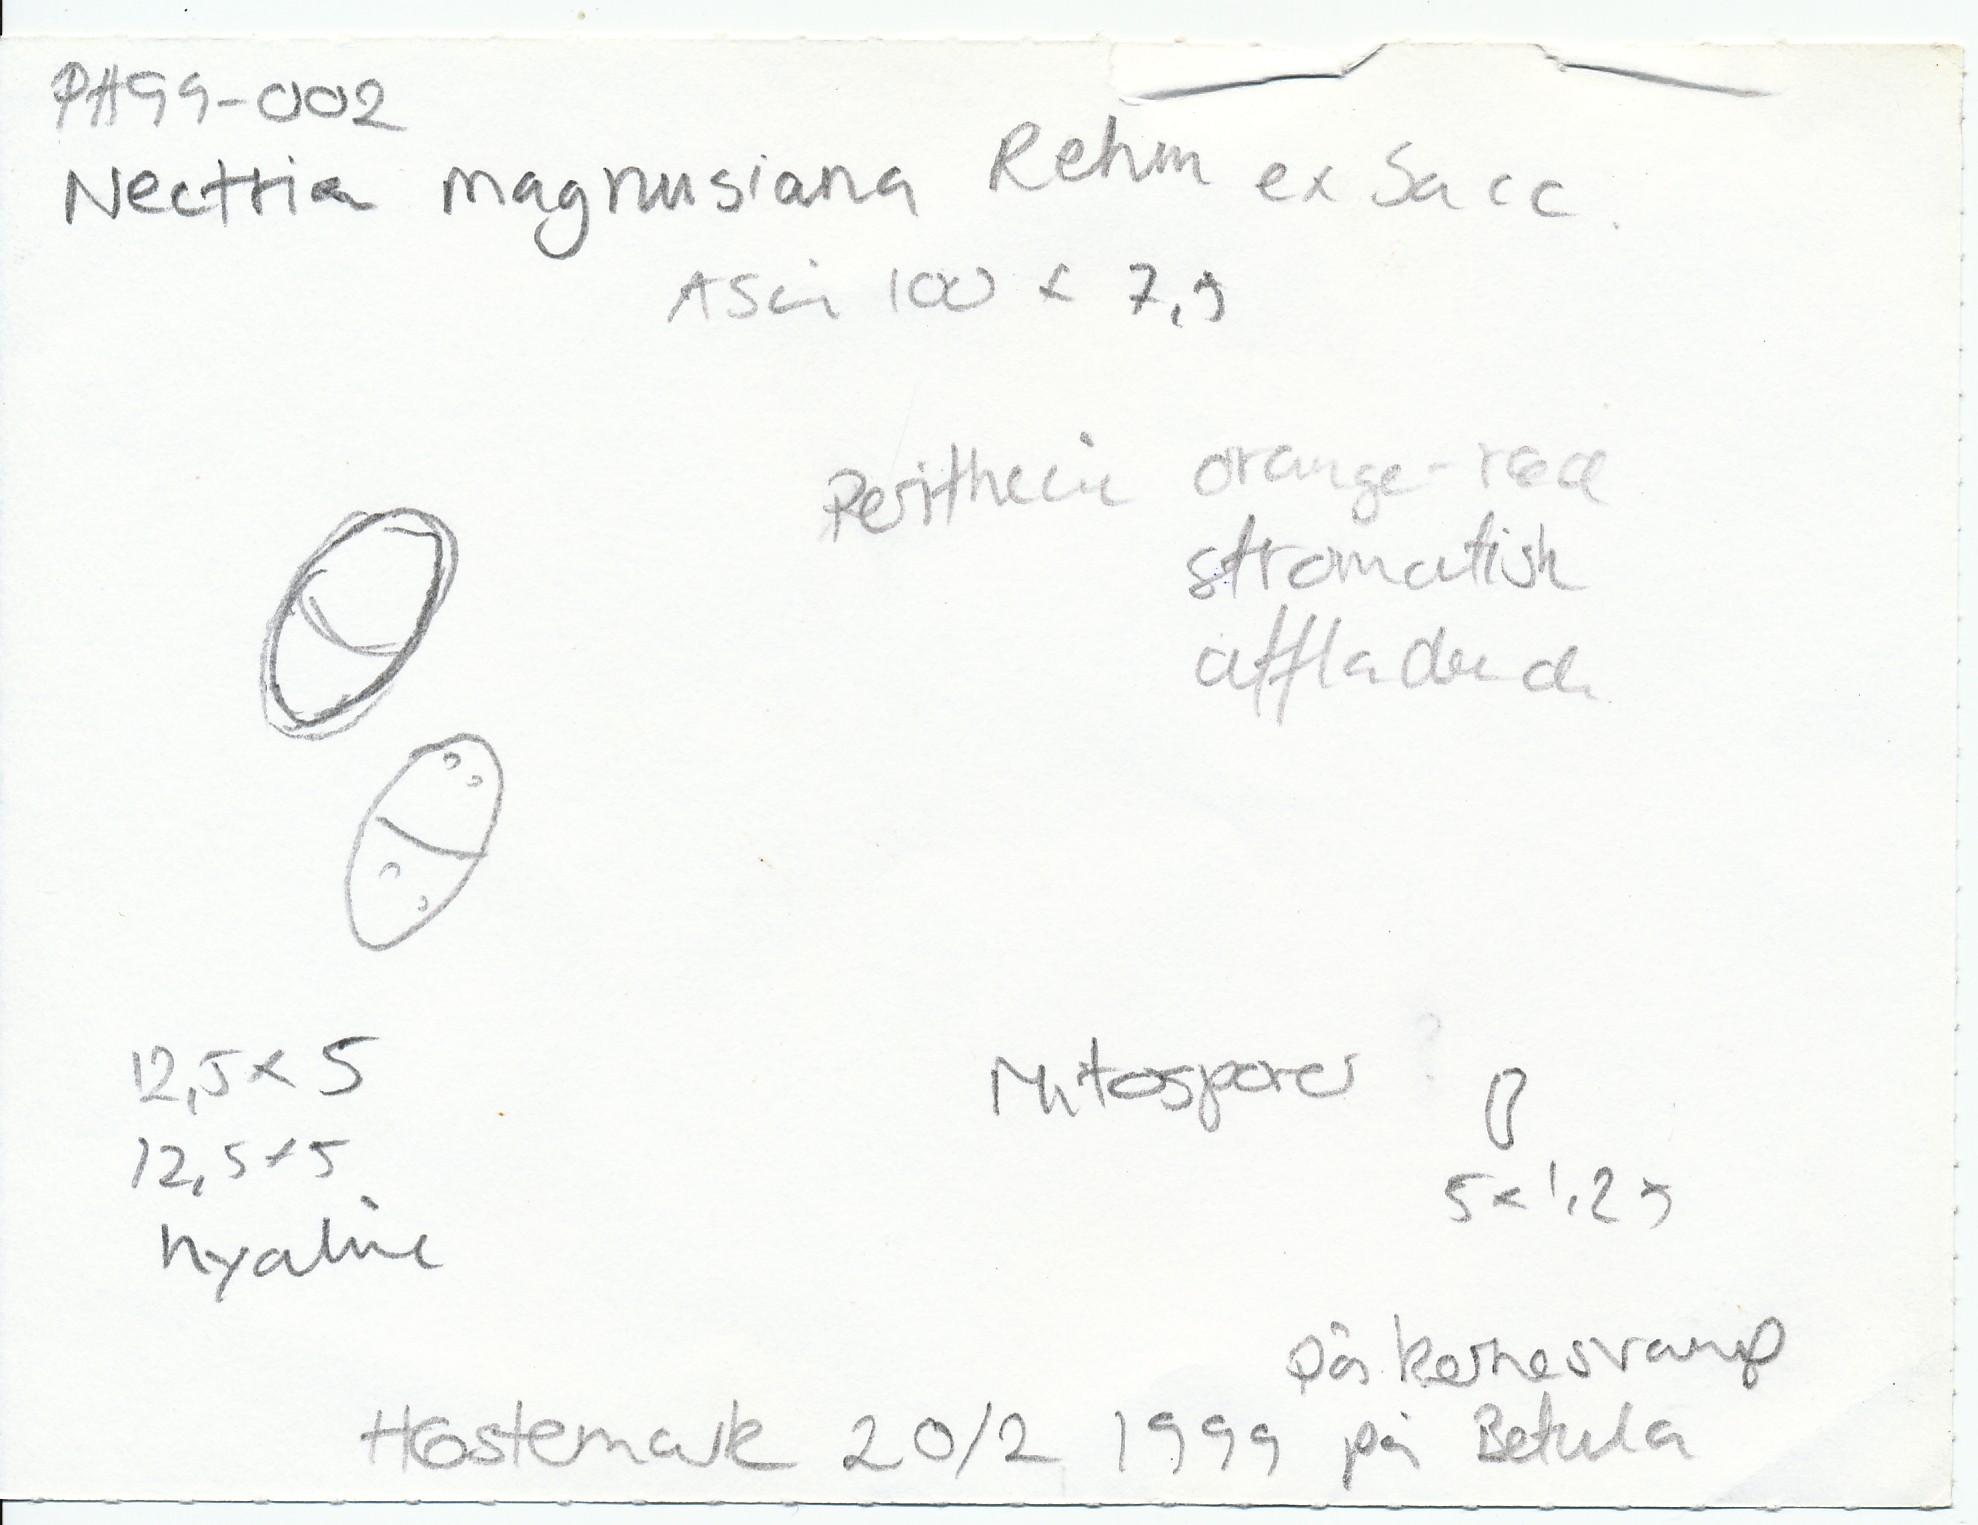 PH99-002
Nectria magnusiana Rehm ex Sacc.
Asci 100 x 7,5
Perithecie orange-rød
stromatisk
affladend
12,5 x 5
12,5 x 5
hyaline
Mitosporer ?
5 x 1,25
på kernesvamp
Høstemark 20/2 1999 på Betula